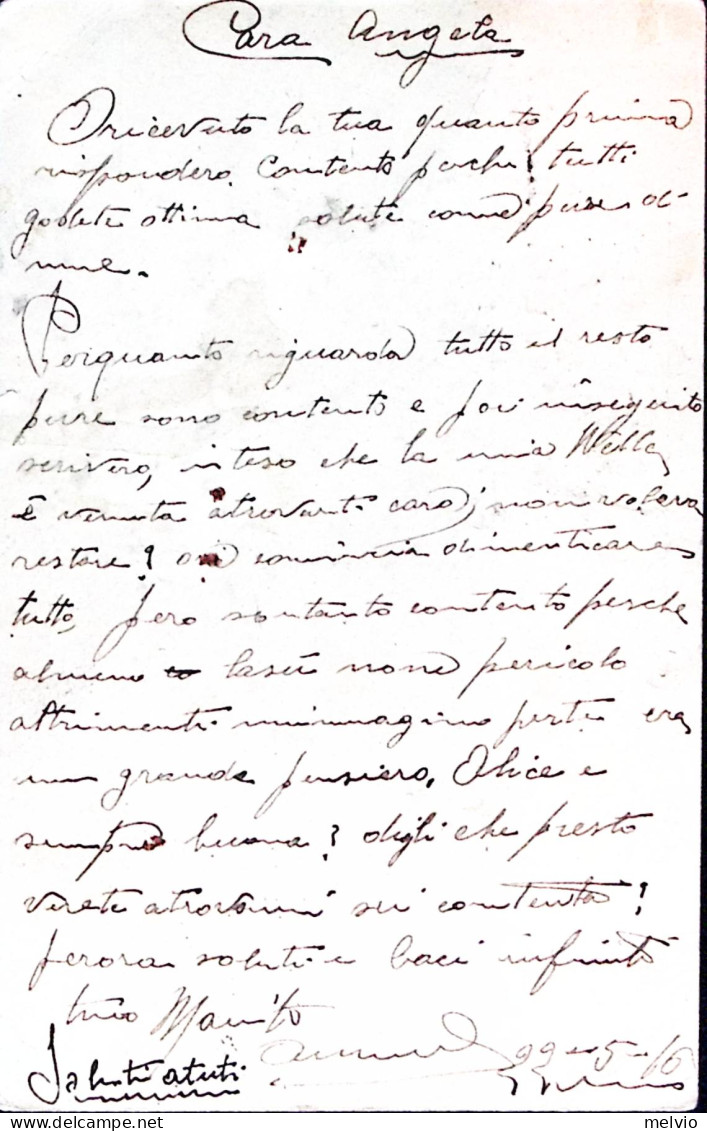 Cara Angela
O ricevuto la tua quanto prima
rispondero. Contento perche tutti
godete ottima salute come pure di
me.
Periquanto riguarda tutto il resto
pure sono contento e poi inseguito
scrivero, inteso che la mia
è venuta atrovarti caro, non voleva
restare? comincia dimenticare
tutto, pero sontanto contento perche
almeno lasù none pericolo
altrimenti mimmagino perte era
un grande pensiero. Alice e
sempre buona? digli che presto
verete atrovarmi sei contenta?
perora saluti e baci infiniti
tuo Marito
22-5-16
Saluti atuti
melvio